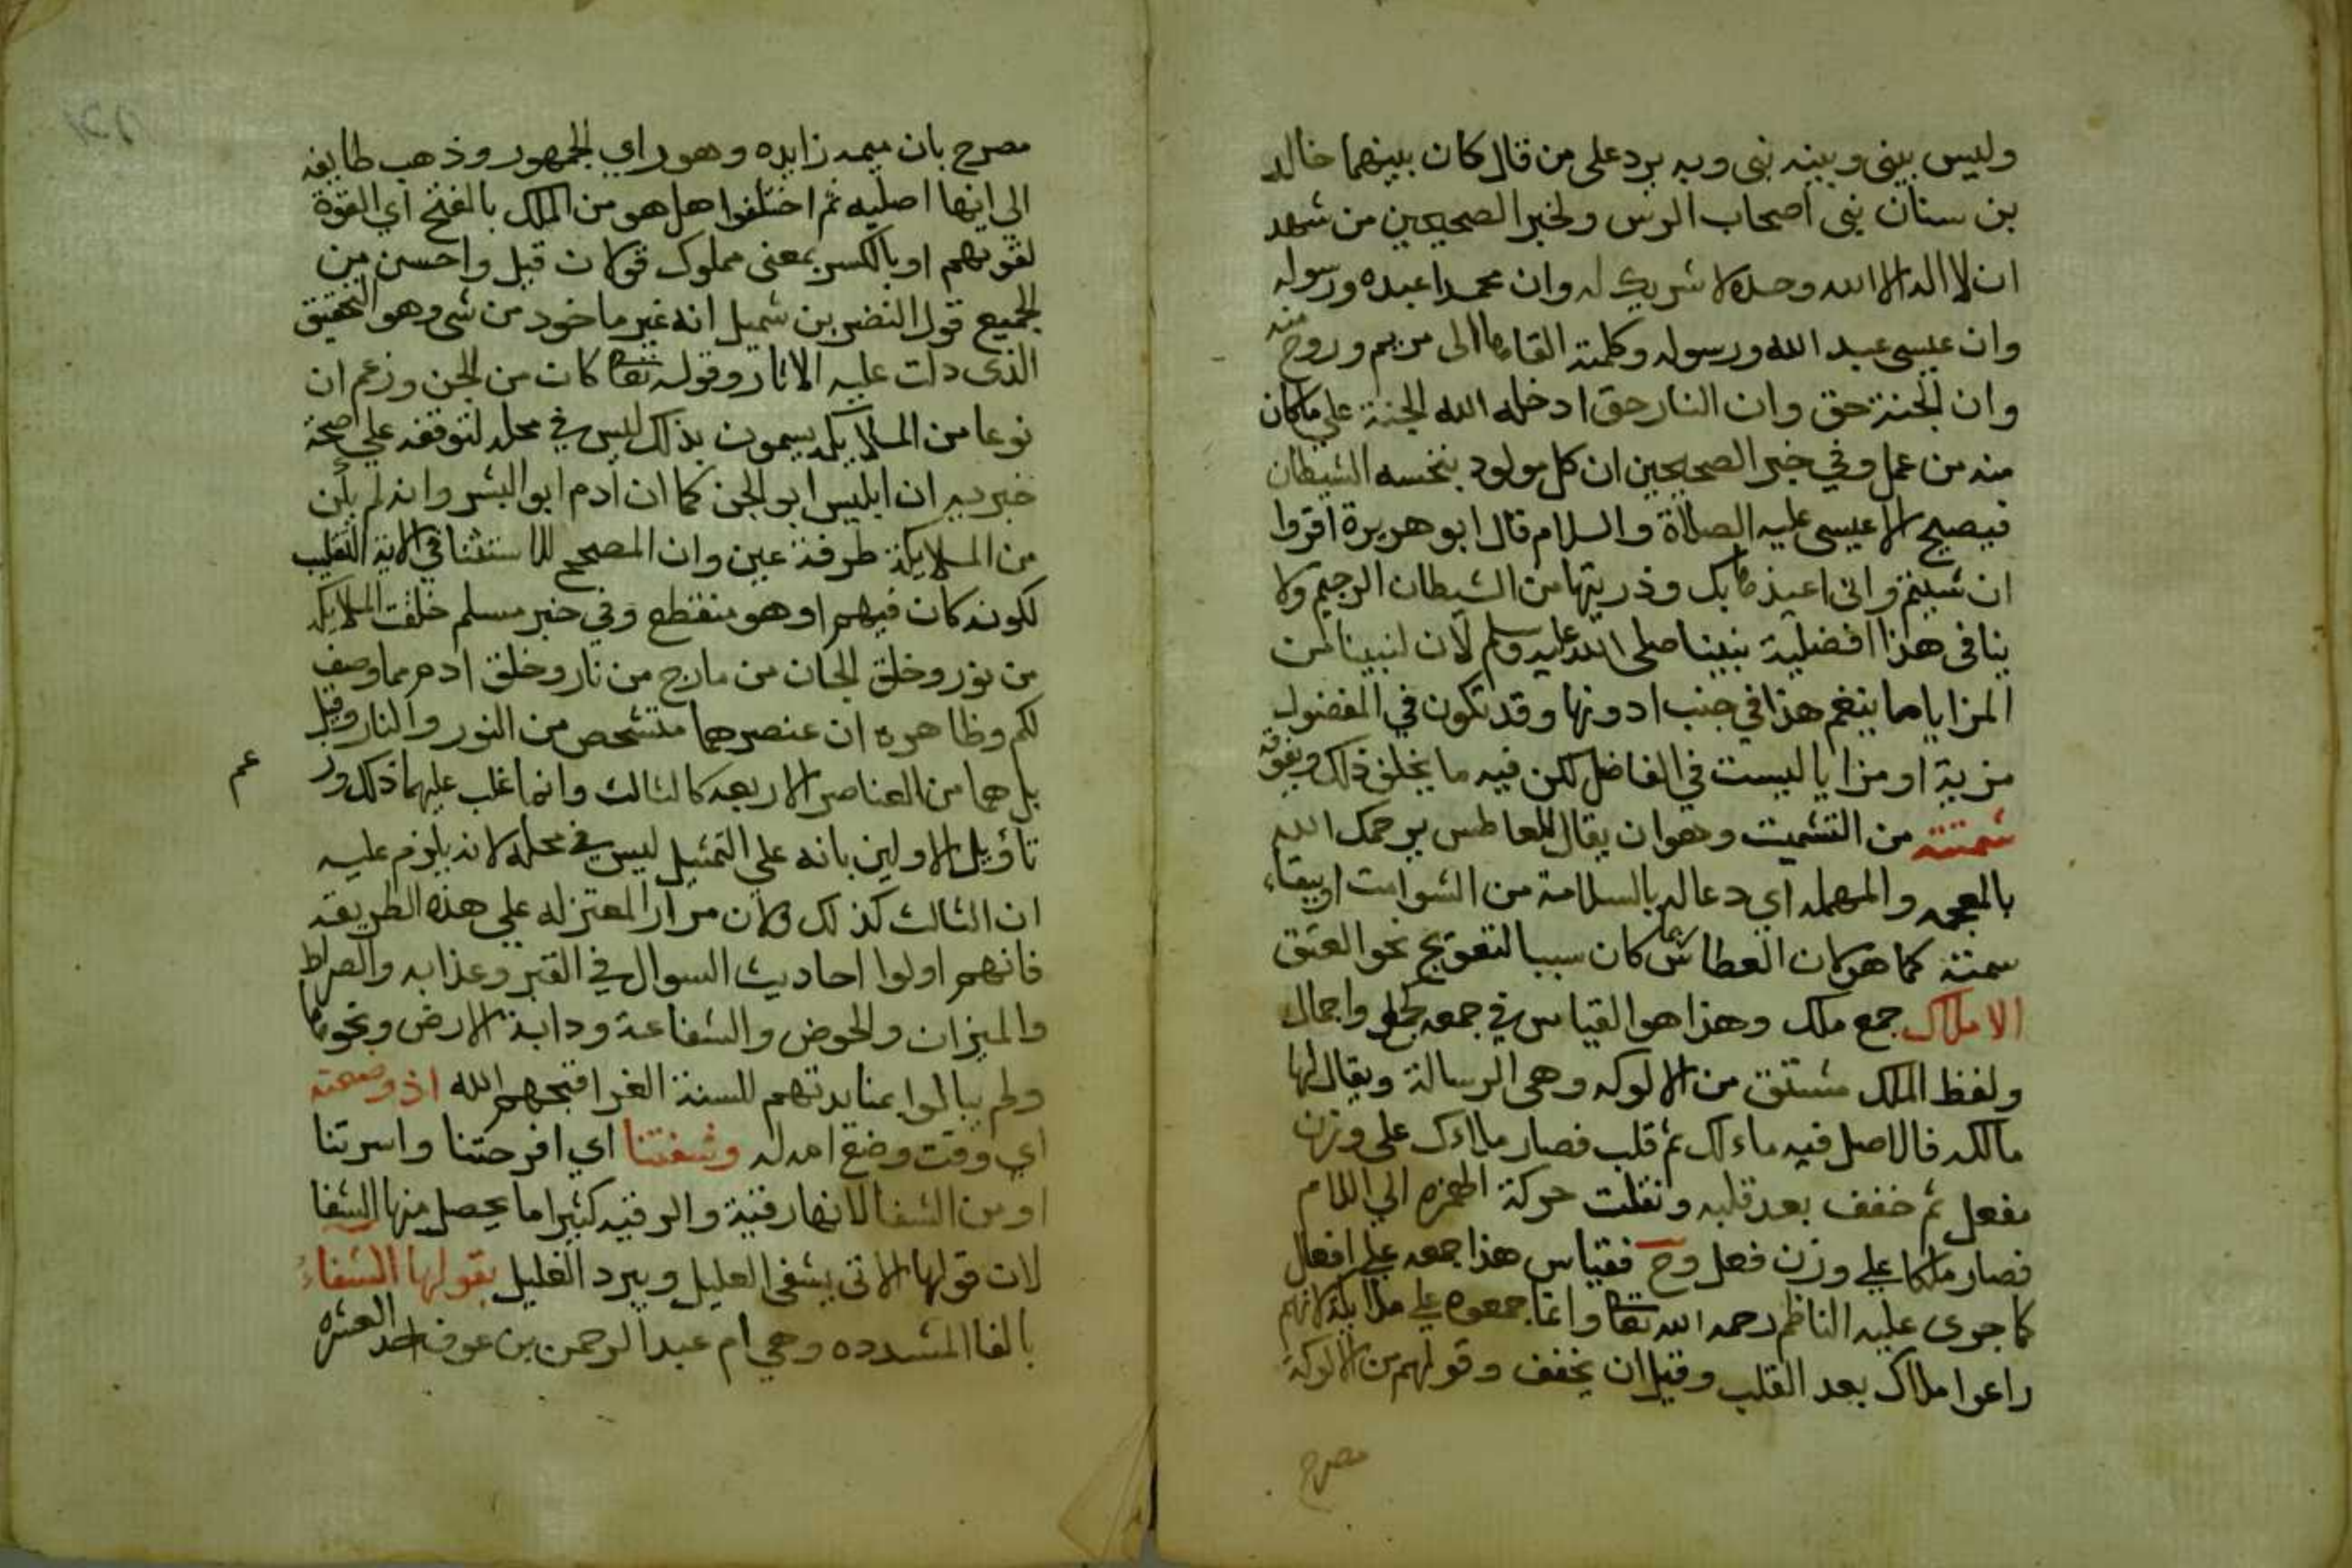 وليس بيني وبينه نبي وبه يرد على من قال كان بينهما خالد
بن سنان نبي اصحاب الرس ولخبر الصحيحين من شهد
ان لا اله الا الله وحده لا شريك له وان محمدا عبده ورسوله
وان عيسى عبد الله ورسوله وكلمته القاها الى مريم وروح منه
وان الجنة حق وان النار حق ادخله الله الجنة علي ما كان
منه من عمل وفي خبر الصحيحين ان كل مولود ينخسه الشيطان
فيصيح الا عيسى عليه الصلاة والسلام قال ابو هريرة اقروا
ان شيتم واني اعيذها بك وذريتها من الشيطان الرجيم ولا
ينافي هذا افضلية نبينا صلى الله عليه وسلم لان لنبينا من
المزايا ما ينغم هذا في جنب ادونها وقد تكون في المفضول
مزية او مزايا ليست في الفاضل لكن فيه ما يخلف ذلك ويفوقه
شمتته من التشميت وهو ان يقال للعاطس يرحمك الله
بالمعجمه والمهمله اي دعا له بالسلامة من الشوامت او يبقاء
سمته كما هو لان العطاس ربما كان سببا لتعويج نحو العنق
الاملاك جمع ملك وهذا هو القياس في جمعه كجمل واجمال
ولفظ الملك مشتق من الالوكه وهي الرسالة ويقال لها
مالكه فالاصل فيه ماءلك ثم قلب فصار ملاءك على وزن
مفعل ثم خفف بعد قلبه ونقلت حركة الهمزه الي اللام
فصار ملكا علي وزن فعل وح فقياس هذا جمعه علي افعال
كما جرى عليه الناظم رحمه الله تعا وانما جمعوه علي ملايكة لانهم
راعوا ملاك بعد القلب وقبل ان يخفف وقولهم من الالوكة
مصرح
مصرح بان ميمه زايده وهو راي الجمهور وذهب طايفه
الى انها اصليه ثم اختلفوا هل هو من الملك بالفتح اي القوة
لقوتهم او بالكسر بمعنى مملوك قولان قيل واحسن من
الجميع قول النضر بن شميل انه غير ماخوذ من شي وهو التحقيق
الذي دلت عليه الاثار وقوله تعا كان من الجن وزعم ان
نوعا من الملايكه يسمون بذلك ليس في محله لتوقفه علي صحة
خبر به ان ابليس ابو الجن كما ان ادم ابو البشر وانه لم يكن
من الملايكة طرفة عين وان المصحح للاستثنا في الاية التغليب
لكونه كان فيهم او هو منقطع وفي خبر مسلم خلقت الملايكه
من نور وخلق الجان من مارج من نار وخلق ادم مما وصف
لكم وظاهره ان عنصرهما متشحص من النور والنار وقيل
بل هما من العناصر الاربعه كالثالث وانما غلب عليهما ذلك ور
عم
تاويل الاولين بانه علي التمثيل ليس في محله لانه يلزم عليه
ان الثالث كذلك ولان مرار المعتزله علي هذه الطريقه
فانهم اولوا احاديث السوال في القبر وعذابه والصراط
والميزان والحوض والشفاعة ودابة الارض ونحوها
ولم يبالوا بمنابدتهم للسنة الغرا قبحهم الله اذ وضعته
اي وقت وضع امه له وشفتنا اي افرحتنا واسرتنا
او من الشفا لانها رقية والرقيه كثيرا ما يحصل منها الشفا
لان قولها الاتي يشفي العليل ويبرد الغليل بقولها الشفاء
بالفا المشدده وهي ام عبد الرحمن بن عوف احد العشره